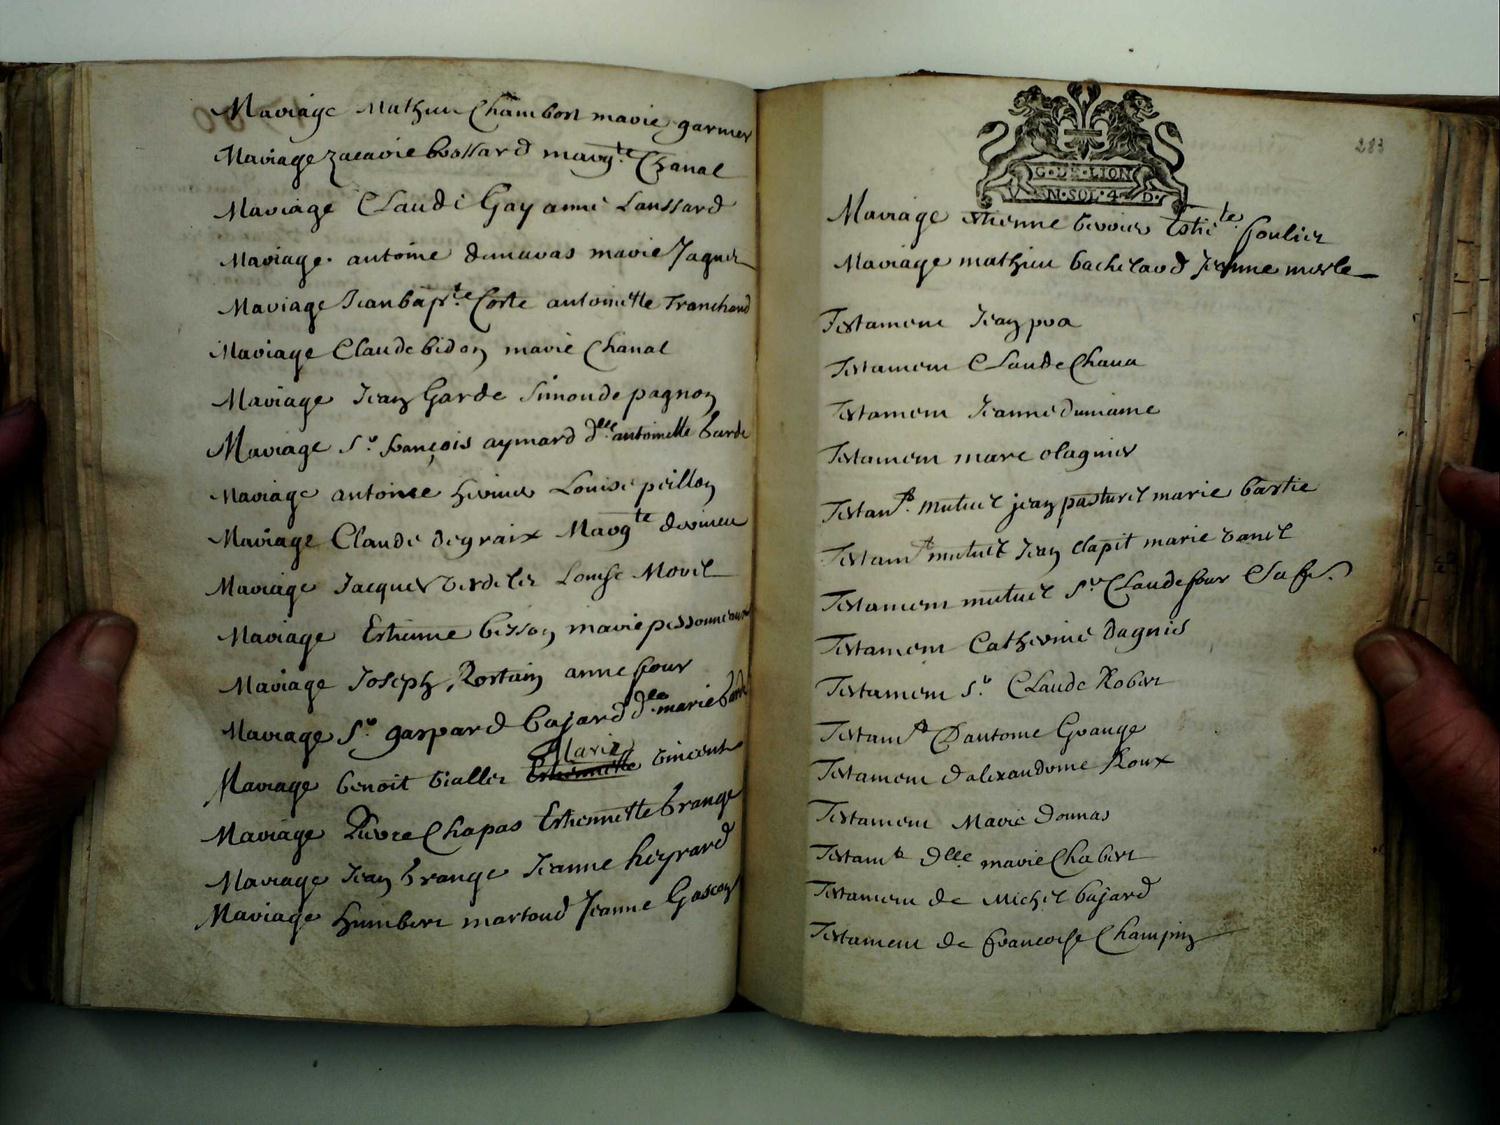 Mariage Mathieu Chambon marie garnier
Mariage zacarie brossard marg.te Chanal
Mariage Claude Gay anne Laussard
Mariage antoine demaras marie Jaguer
Mariage Jean bap.te Coste antoinette Tranchand
Mariage Claude bidon marie Chanal
Mariage Jean Garde Simonde pagnon
Mariage S.r françois aymard d.lle antoinette barde
Mariage antoine Louise peillon
Mariage Claude degraix Marg.te
Mariage Jacques verdelet Louise Morel
Mariage Estienne bisson marie pessonneaux
Mariage Joseph Rortain anne four
Mariage S.r gaspard bajard d.lle marie barde
Mariage benoit vialler Marie Estiennette vincent
Mariage Pierre Chapas Estiennette brange
Mariage Jean brange Jeanne heyrard
Mariage humbert martoud Jeanne Gascon
283
G·DE·LION
N·SOL·4·D·
Mariage Estienne Esti.te foulier
Mariage mathieu bachelard Jeanne merle
Testament Jean pra
Testament Claude Chara
Testament Jeanne
Testament marc olagnier
Testam.t mutuel jean pasturel marie bastie
Testam.t mutuel Jean Clapit marie vanel
Testament mutuel S.r Claude four
Testament Catherine dagnis
Testament S.r Claude Robert
Testam.t D'antoine Grange
Testament d'alexandrine Roux
Testament Marie donnas
Testam.t d.lle marie Chabert
Testament de Michel bajard
Testament de françoise Champin